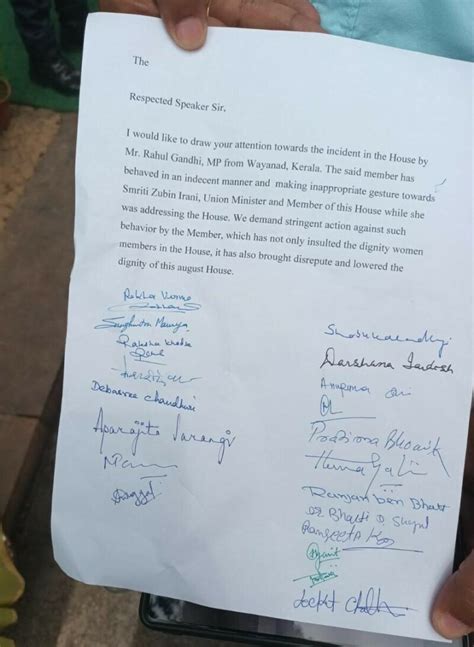 The
Respected Speaker Sir,
I would like to draw your attention towards the incident in the House by
Mr. Rahul Gandhi, MP from Wayanad, Kerala. The said member has
behaved in an indecent manner and making inappropriate gesture towards
Smriti Zubin Irani, Union Minister and Member of this House while she
was addressing the House. We demand stringent action against such
behavior by the Member, which has not only insulted the dignity women
members in the House, it has also brought disrepute and lowered the
dignity of this august House.
Rekha Verma
Sanghmitra Maurya
Raksha Khadse
Debasree Chaudhuri
Aparajita Sarangi
Darshana Jardosh
Pratima Bhoumik
Ranjanben Bhatt